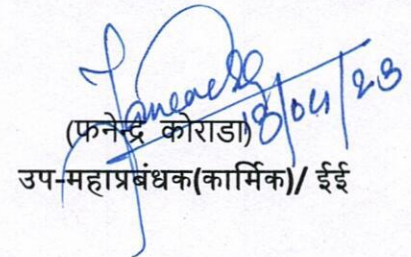 18/04/23
(फनेन्द्र कोराडा)
उप-महाप्रबंधक(कार्मिक)/ ईई